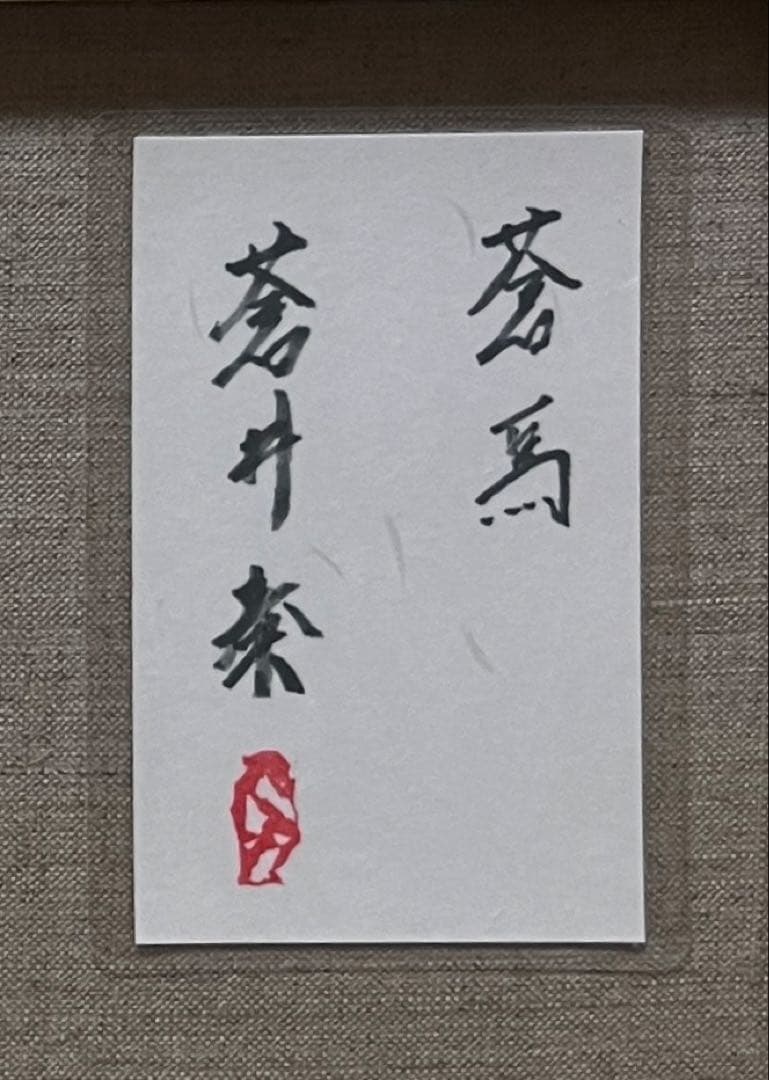 蒼馬
蒼井